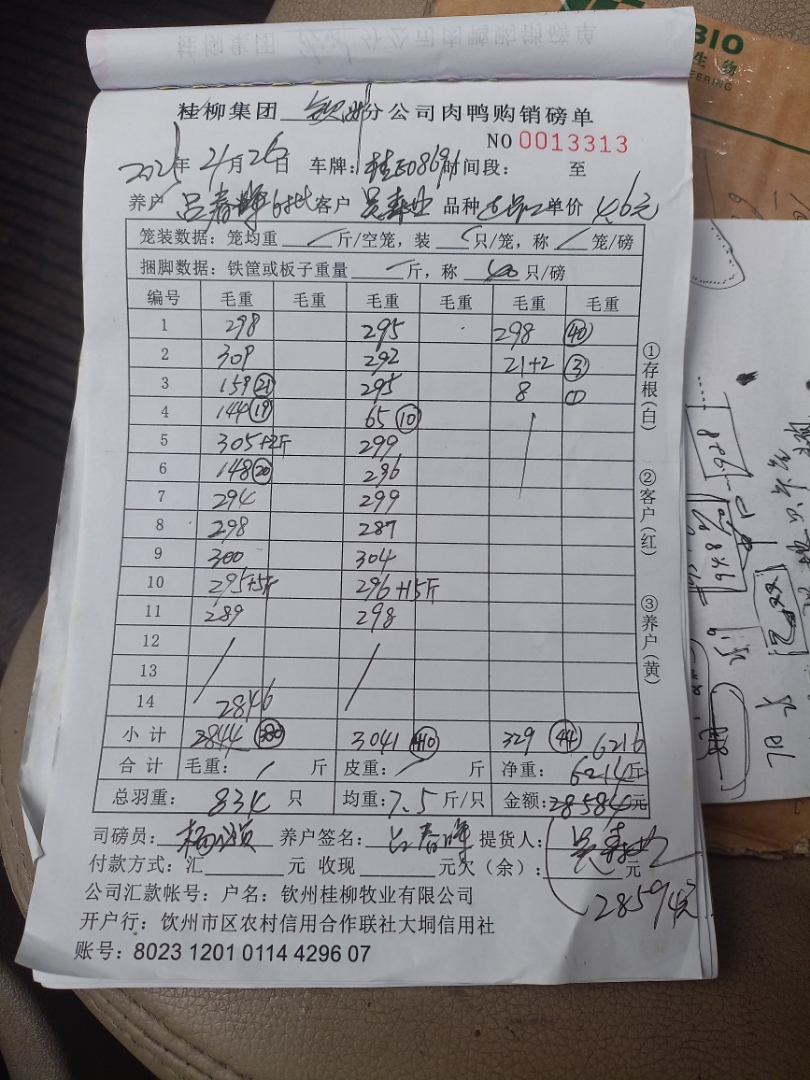 桂柳集团 钦州 分公司肉鸭购销磅单
NO 0013313
2021年 4月26日 车牌: 时间段: 至
养户 吕春峰 客户 吴春业 品种 单价 4.6元
笼装数据: 笼均重 / 斤/空笼, 装 / 只/笼, 称 / 笼/磅
捆脚数据: 铁筐或板子重量 / 斤, 称 40 只/磅
编号 毛重 毛重 毛重 毛重 毛重 毛重
1 298 295 298 40
2 309 292 21+2 3
3 159 21 295 8 1
4 144 19 65 10
5 305+2斤 299
6 148 20 296
7 294 299
8 298 287
9 300 304
10 295+5斤 296+15斤
11 289 298
12
13
14 2846
小计 2844 380 3041 410 329 44 6216
合计 毛重: / 斤 皮重: / 斤 净重: 6214斤
总羽重: 834 只 均重: 7.5 斤/只 金额: 28584元
司磅员: 养户签名: 吕春峰 提货人: 吴春业
付款方式: 汇 元 收现 元欠(余): 元
28594元
公司汇款帐号: 户名: 钦州桂柳牧业有限公司
开户行: 饮州市区农村信用合作联社大垌信用社
账号: 8023 1201 0114 4296 07
①存根(白)
②客户(红)
③养户(黄)
BIO
生物
EERING